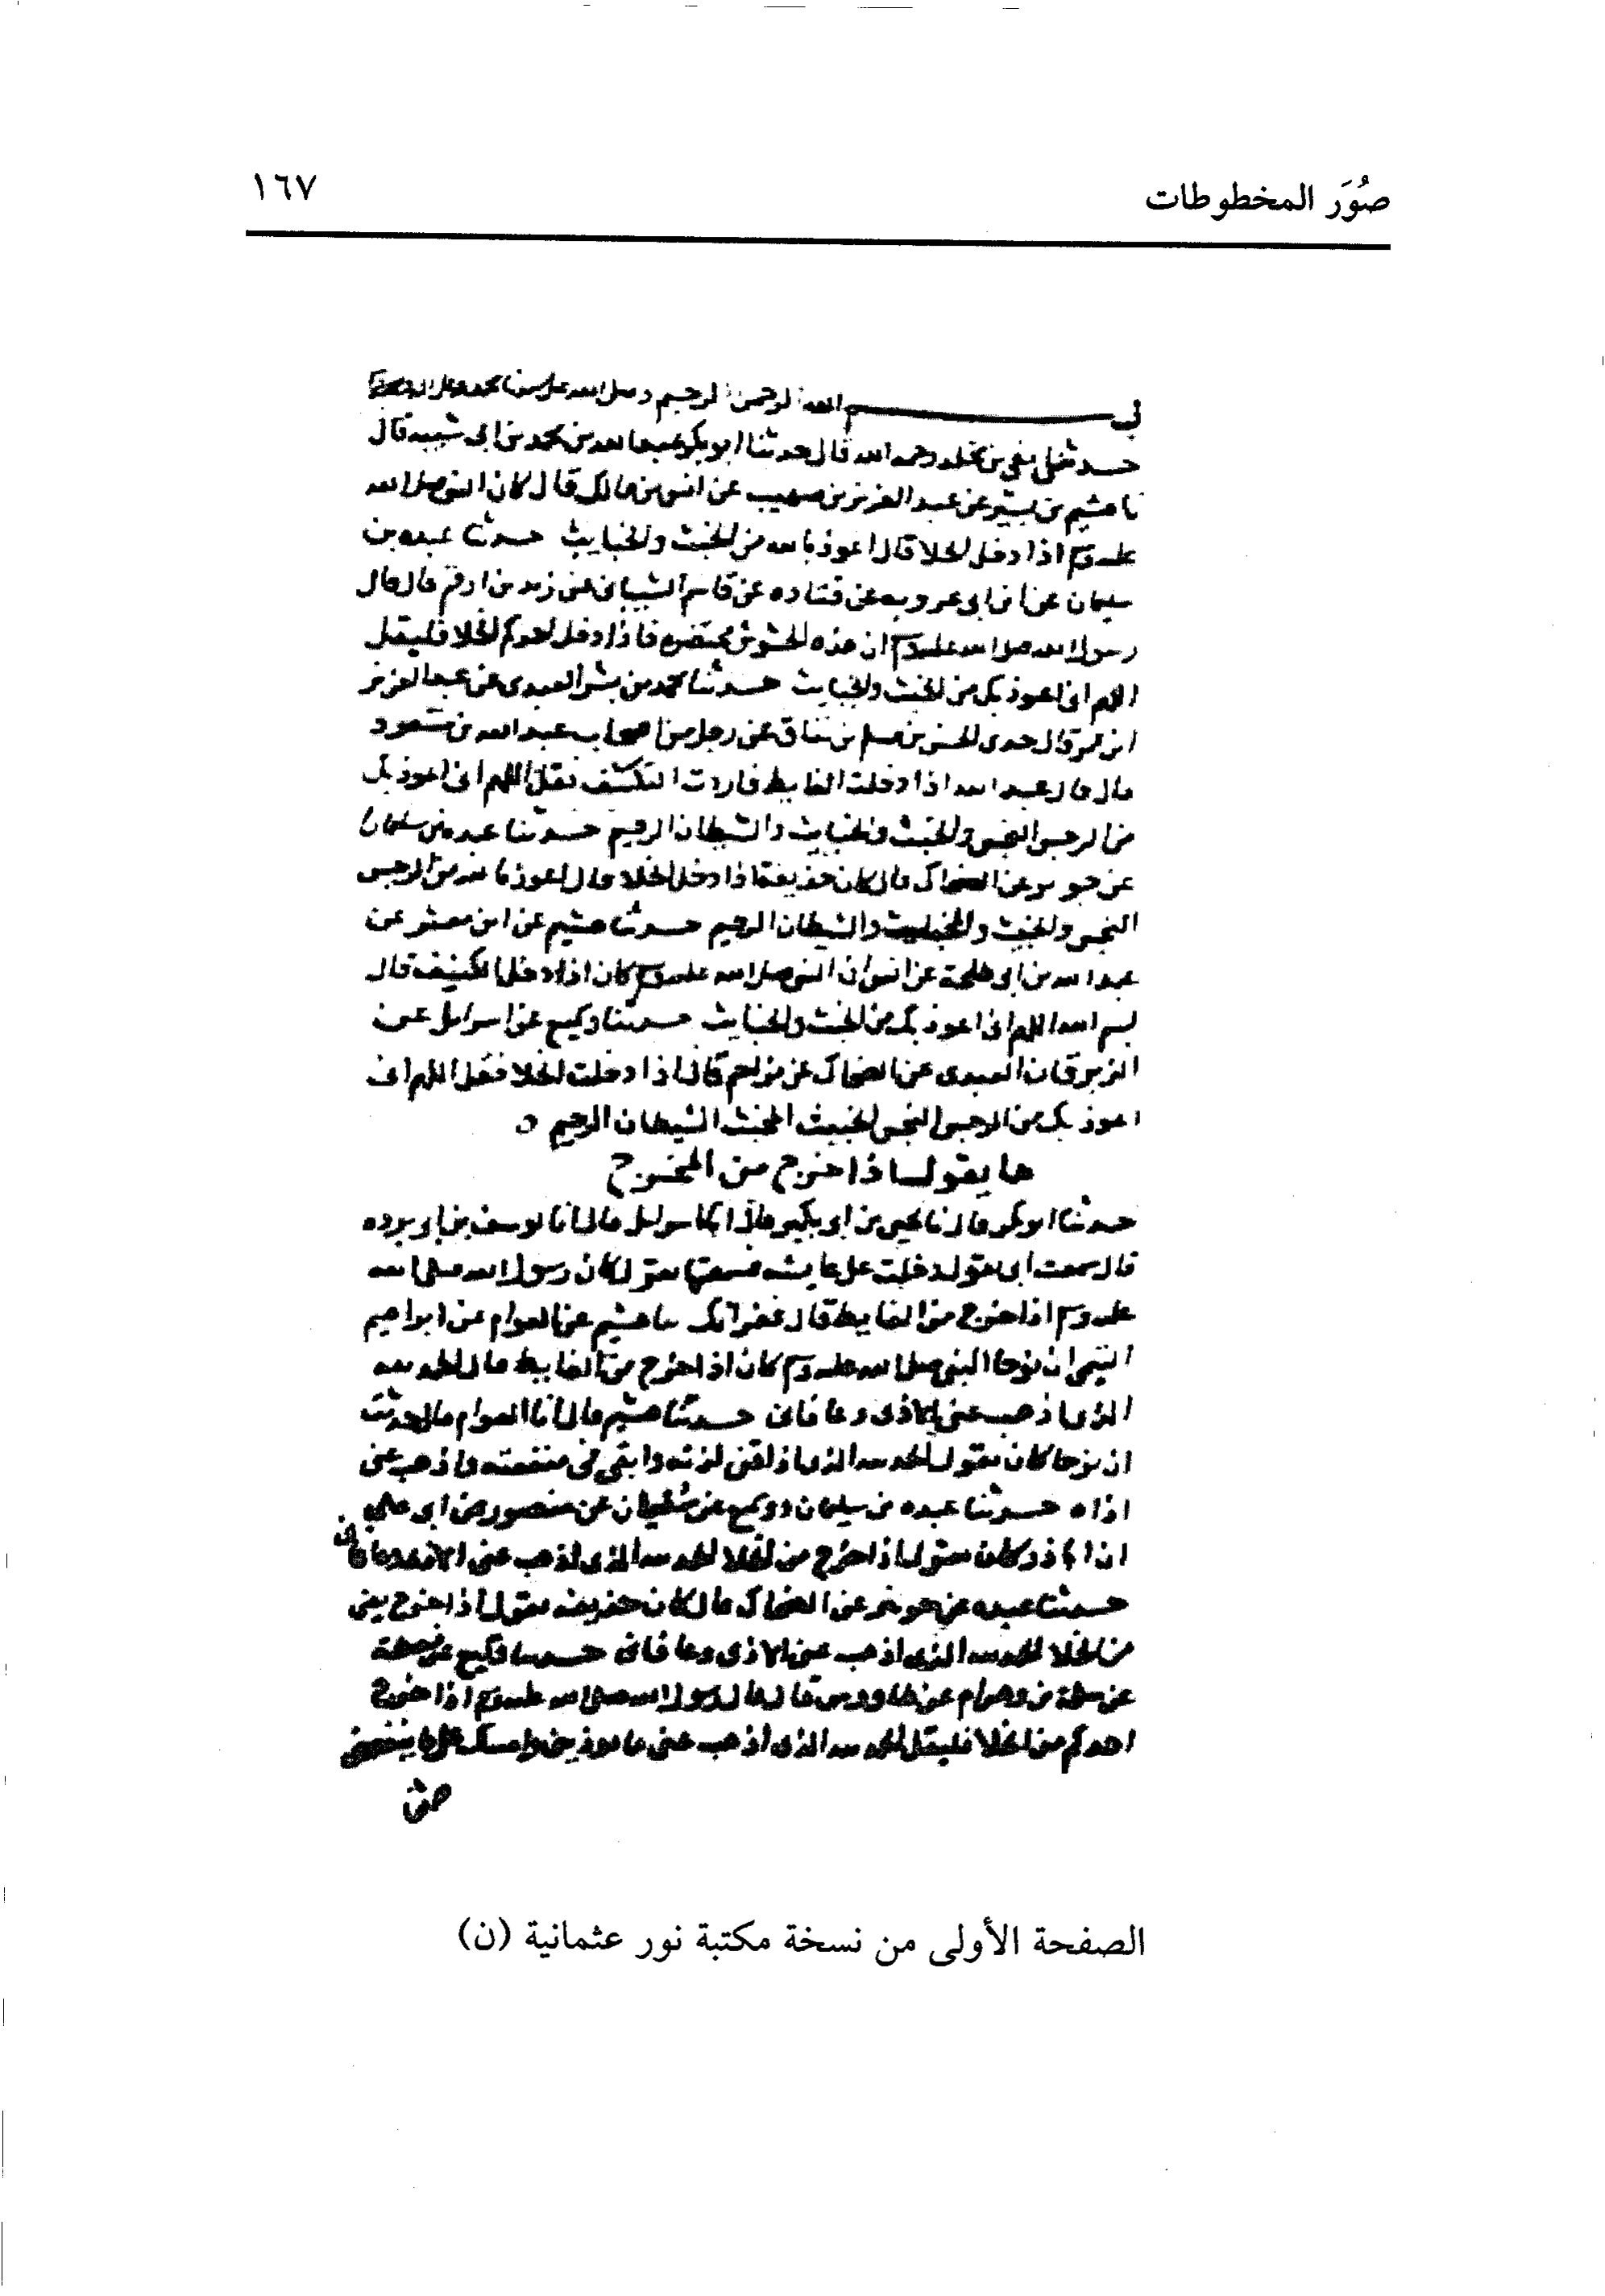 صُوَر المخطوطات
١٦٧
بسم الله الرحمن الرحيم وصلى الله على سيدنا محمد وعلى اله
حدثني بقي بن مخلد رحمه الله قال حدثنا ابو بكر عبد الله بن محمد بن ابي شيبه قال
نا هشيم بن بشير عن عبد العزيز بن صهيب عن انس بن مالك قال كان النبي صلى الله
عليه وسلم اذا دخل الخلا قال اعوذ بالله من الخبث والخبايث حدثنا عبده بن
سليمان عن ابن ابي عروبه عن قتاده عن قاسم الشيباني عن زيد بن ارقم قال قال
رسول الله صلى الله عليه وسلم ان هذه الحشوش محتضره فاذا دخل احدكم الخلا فليقل
اللهم اني اعوذ بك من الخبث والخبايث حدثنا محمد بن بشر العبدي عن عبد العزيز
ابن عمر قال حدثني الحسن بن مسلم بن يناق عن رجل من اصحاب عبد الله بن مسعود
قال قال عبد الله اذا دخلت الغايط فاردت التكشف فقل اللهم اني اعوذ بك
من الرجس النجس والخبث والخبايث والشيطان الرجيم حدثنا عبده بن سليمان
عن جويبر عن الضحاك قال كان حذيفة اذا دخل الخلا قال اعوذ بالله من الرجس
النجس والخبيث والشيطان الرجيم حدثنا هشيم عن ابي معشر عن
عبد الله بن ابي طلحة عن انس ان النبي صلى الله عليه وسلم كان اذا دخل الكنيف قال
بسم الله اللهم اني اعوذ بك من الخبث والخبايث حدثنا وكيع عن اسرايل عن
الزبرقان العبدي عن الضحاك بن مزاحم قال اذا دخلت الخلا فقل اللهم اني
اعوذ بك من الرجس النجس الخبيث المخبث الشيطان الرجيم
ما يقول اذا خرج من المخرج
حدثنا ابو بكر قال نا يحيى بن ابي بكير قال انا اسرايل قال انا يوسف بن ابي برده
قال سمعت ابي يقول دخلت على عايشه فسمعتها تقول كان رسول الله صلى الله
عليه وسلم اذا خرج من الغايط قال غفرانك نا هشيم عن العوام عن ابراهيم
التيمي ان نوحا النبي صلى الله عليه وسلم كان اذا خرج من الغايط قال الحمد لله
الذي اذهب عني الاذى وعافاني حدثنا هشيم قال انا العوام قال حدثت
ان نوحا كان يقول الحمد لله الذي اذاقني لذته وابقى في منفعته واذهب عني
اذاه حدثنا عبده بن سليمان ووكيع عن سفيان عن منصور عن ابي علي
ان ابا ذر كان يقول اذا خرج من الخلا الحمد لله الذي اذهب عني الاذى وعافاني
حدثنا عبده عن جويبر عن الضحاك قال كان حذيفه يقول اذا خرج يعني
من الخلا الحمد لله الذي اذهب عني الاذى وعافاني حدثنا وكيع عن زمعة
عن سلمة بن وهرام عن طاووس قال قال رسول الله صلى الله عليه وسلم اذا خرج
احدكم من الخلا فليقل الحمد لله الذي اذهب عني ما يوذيني وامسك علي ما ينفعني
الصفحة الأولى من نسخة مكتبة نور عثمانية (ن)